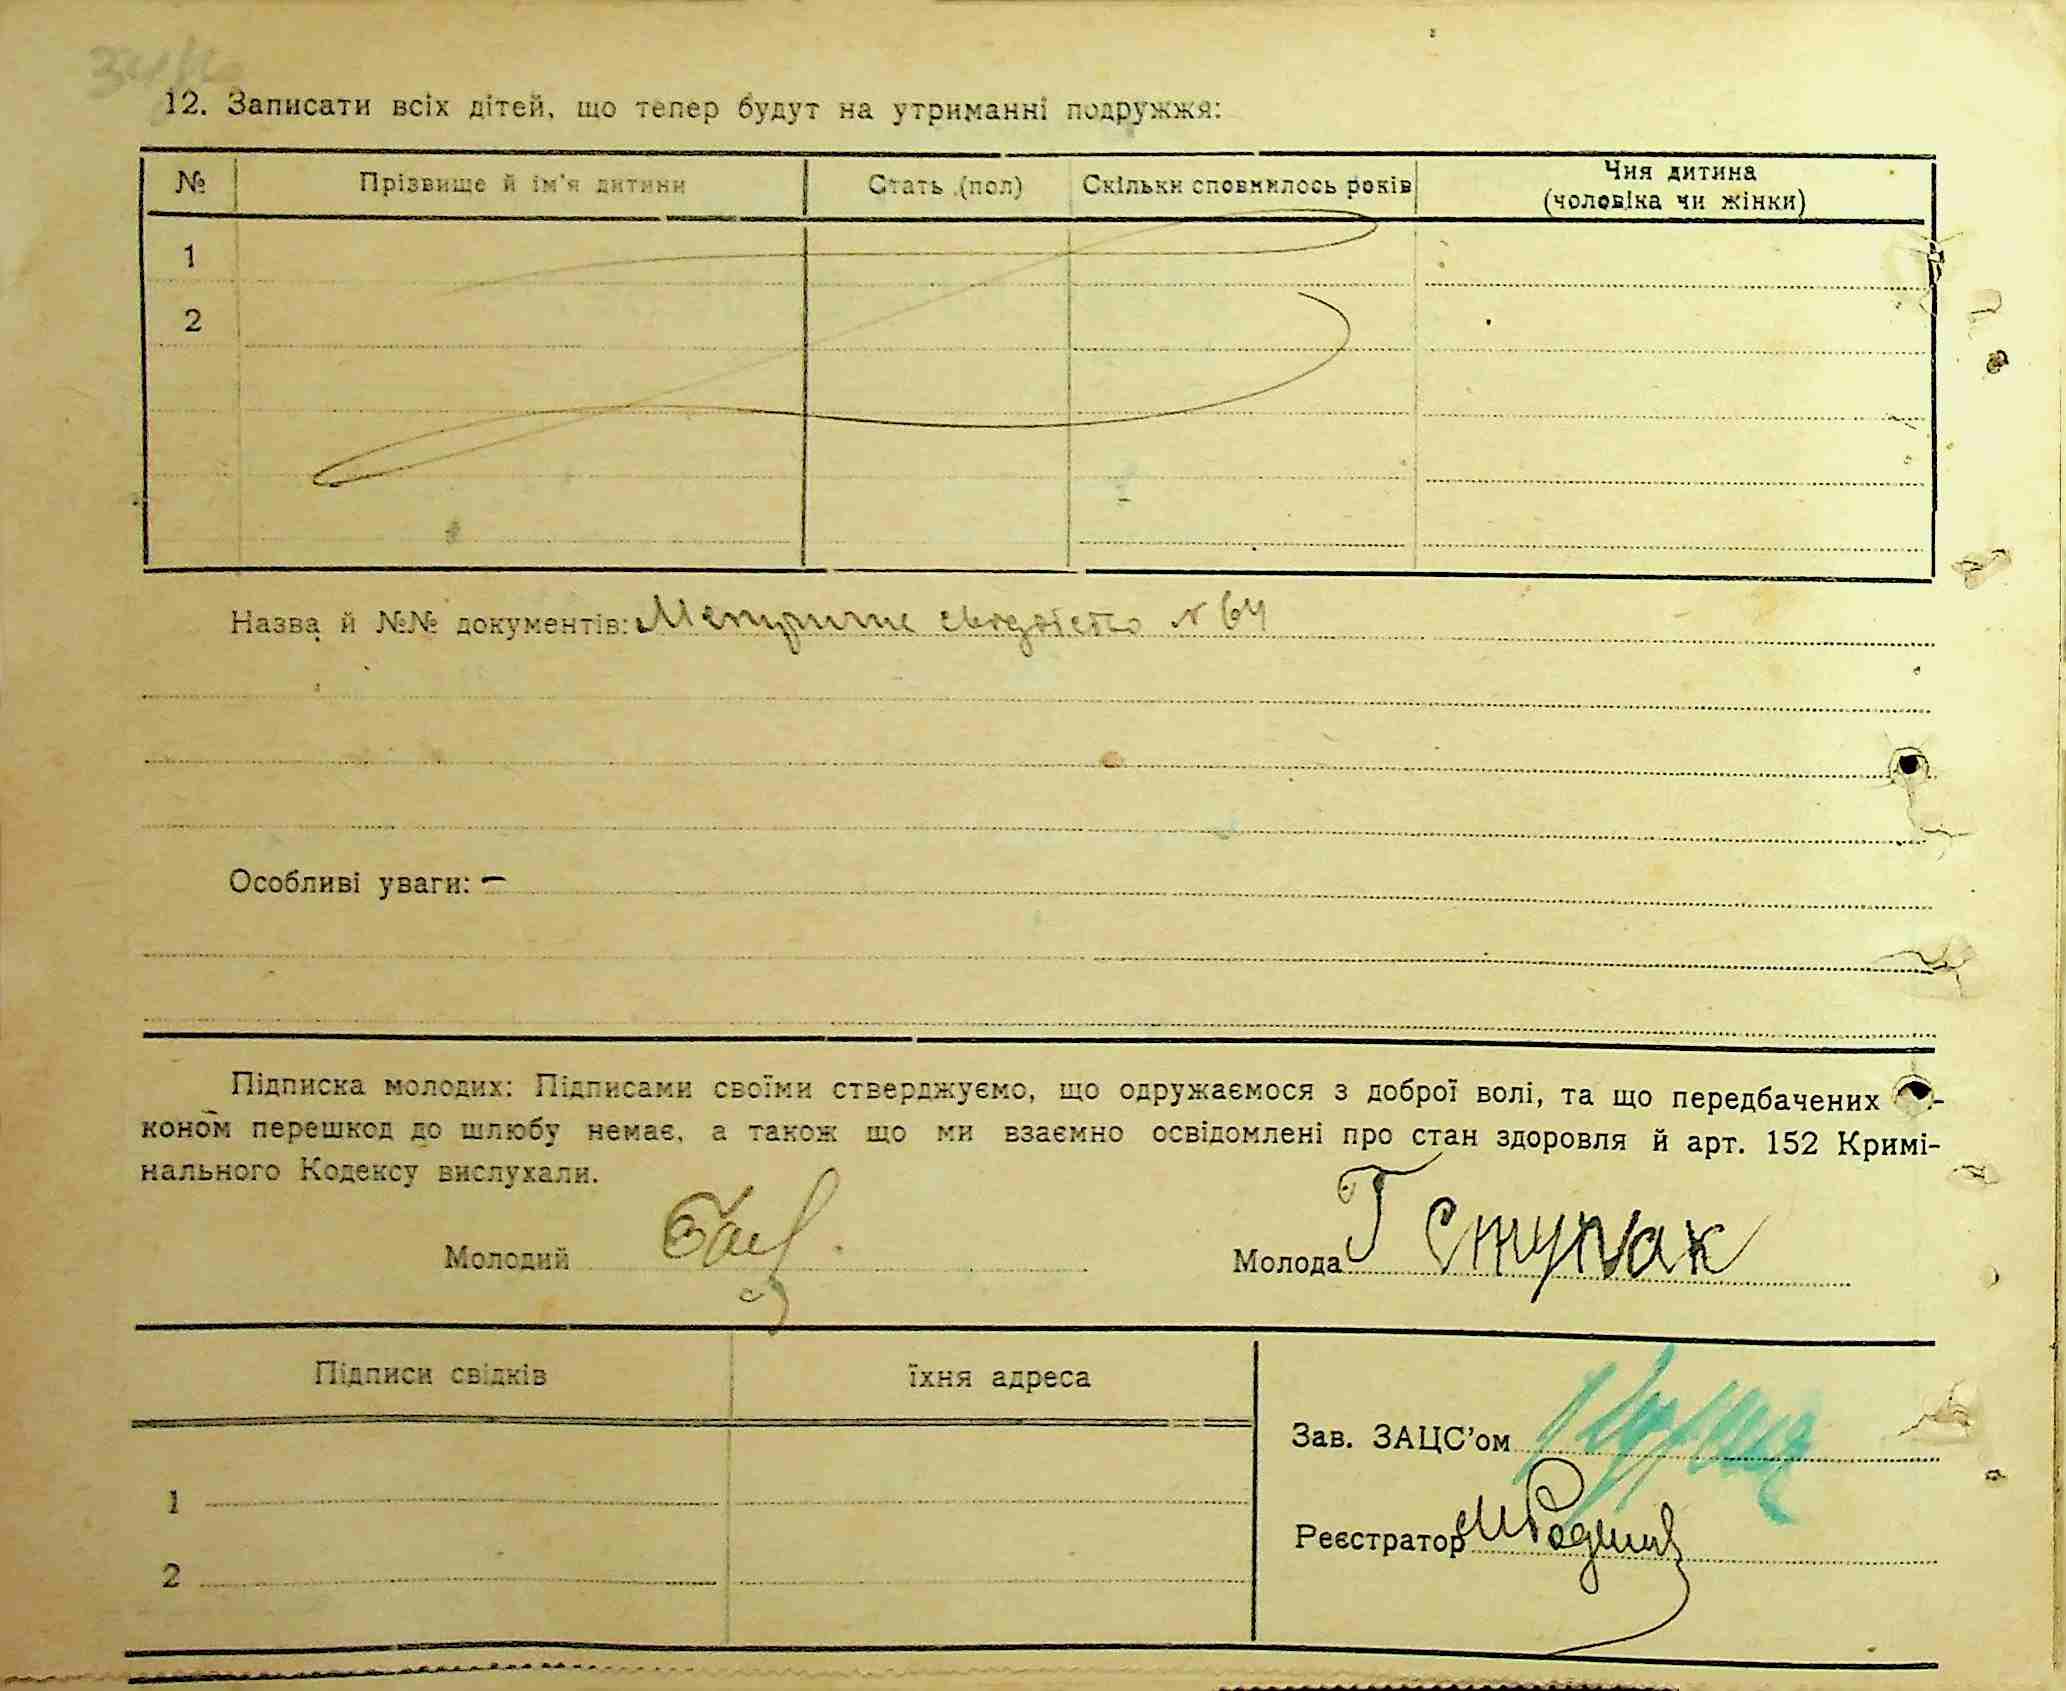 12. Записати всіх дітей, що тепер будут на утриманні подружжя:
№ Прізвище й ім'я дитини Стать (пол) Скільки сповнилось років Чия дитина (чоловіка чи жінки)
1
2
Назва й №№ документів: Метричне свидоцтво № 64
Особливі уваги: —
Підписка молодих: Підписами своїми стверджуємо, що одружаємося з доброї волі, та що передбачених
коном перешкод до шлюбу немає, а також що ми взаємно освідомлені про стан здоровля й арт. 152 Кримі-
нального Кодексу вислухали.
Молодий Молода Г Ступак
Підписи свідків їхня адреса
Зав. ЗАЦС'ом
1
Реєстратор
2